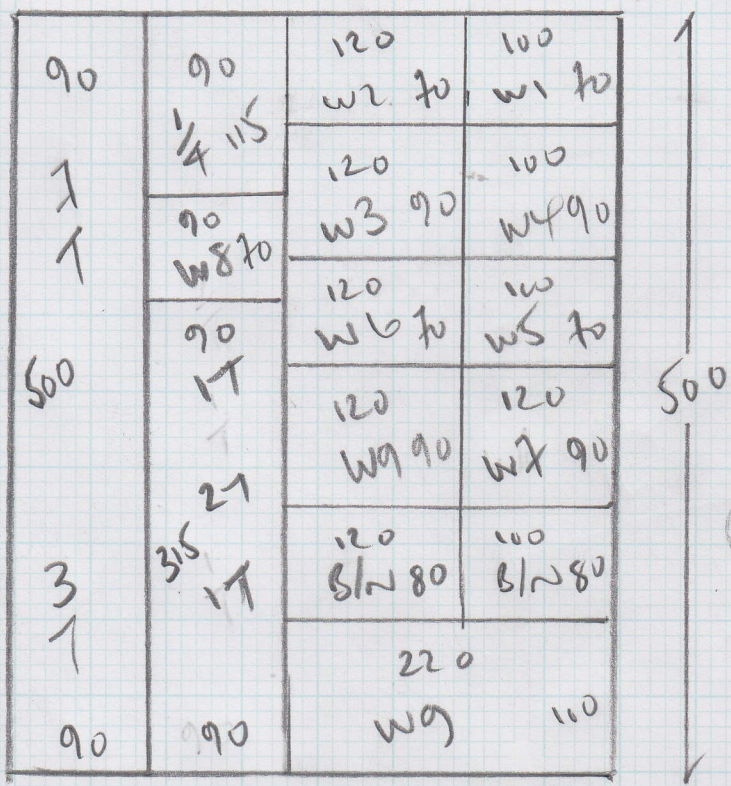 90
1
1
500
3
1
90
90
1/4 115
90
W8 70
90
1T
21
315
1T
90
120
W2 70
100
W1 70
120
W3 90
100
W4 90
120
W6 70
100
W5 70
120
W9 90
120
W7 90
120
B/N 80
100
B/N 80
220
W9 100
500